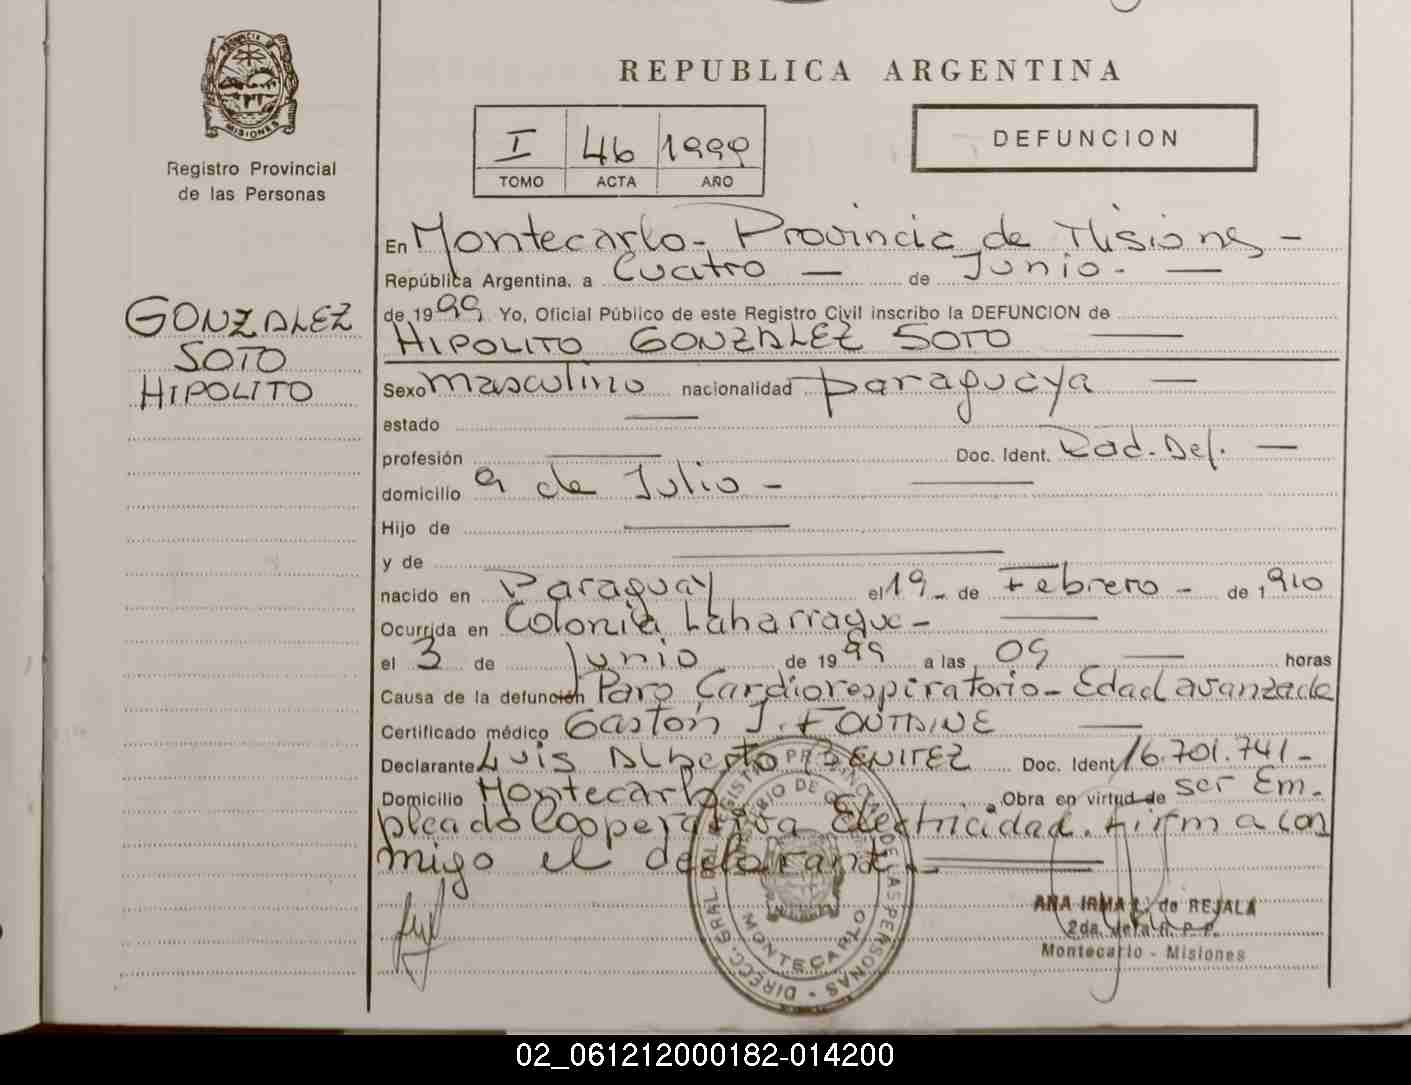 PROVINCIA DE
MISIONES
Registro Provincial
de las Personas
GONZALEZ
SOTO
HIPOLITO
REPUBLICA ARGENTINA
I 46 1999
TOMO ACTA AÑO
DEFUNCION
En Montecarlo - Provincia de Misiones -
República Argentina, a Cuatro — de Junio - —
de 1999 Yo, Oficial Público de este Registro Civil inscribo la DEFUNCION de
HIPOLITO GONZALEZ SOTO —
Sexo masculino nacionalidad paraguaya —
estado —
profesión — Doc. Ident. Rad. Def. —
domicilio 9 de Julio - —
Hijo de —
y de —
nacido en Paraguay el 19 - de Febrero - de 1,910
Ocurrida en Colonia Laharrague - —
el 3 de Junio de 1999 a las 09 — horas
Causa de la defunción Paro Cardiorespiratorio - Edad avanzada
Certificado médico Gastón J. FOUTAINE —
Declarante Luis Alberto BENITEZ Doc. Ident 16.701.741 -
Domicilio Montecarlo Obra en virtud de ser Em-
pleado Cooperativa Electricidad. Firma con
migo el declarante -
DIRECC. GRAL. DEL REGISTRO PROVINCIAL DE LAS PERSONAS
MONTECARLO
ANA IRMA L. de REJALA
2da. Jefa R. P. P.
Montecarlo - Misiones
02_061212000182-014200